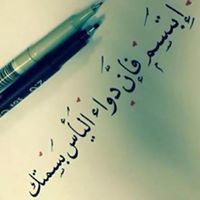 إِبتَسِم فَإِن دَواء اليَأسِ بَسمَتك